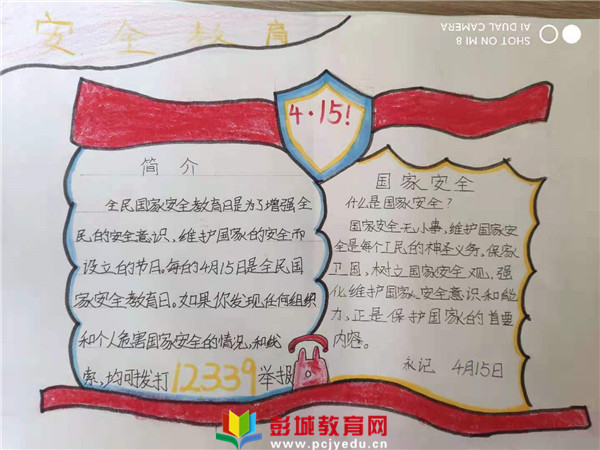 安全教育
SHOT ON MI 8
AI DUAL CAMERA
4·15!
简介
全民国家安全教育日是为了增强全
民的安全意识，维护国家的安全而
设立的节日。每的4月15日是全民国
家安全教育日。如果你发现任何组织
和个人危害国家安全的情况，和线
索，均可拨打12339举报
国家安全
什么是国家安全？
国家安全无小事，维护国家安
全是每个工民的神圣义务。保家
卫国，树立国家安全观，强
化维护国家安全意识和能
力，正是保护国家的首要
内容。
永记 4月15日
彭城教育网
www.pcjyedu.cn